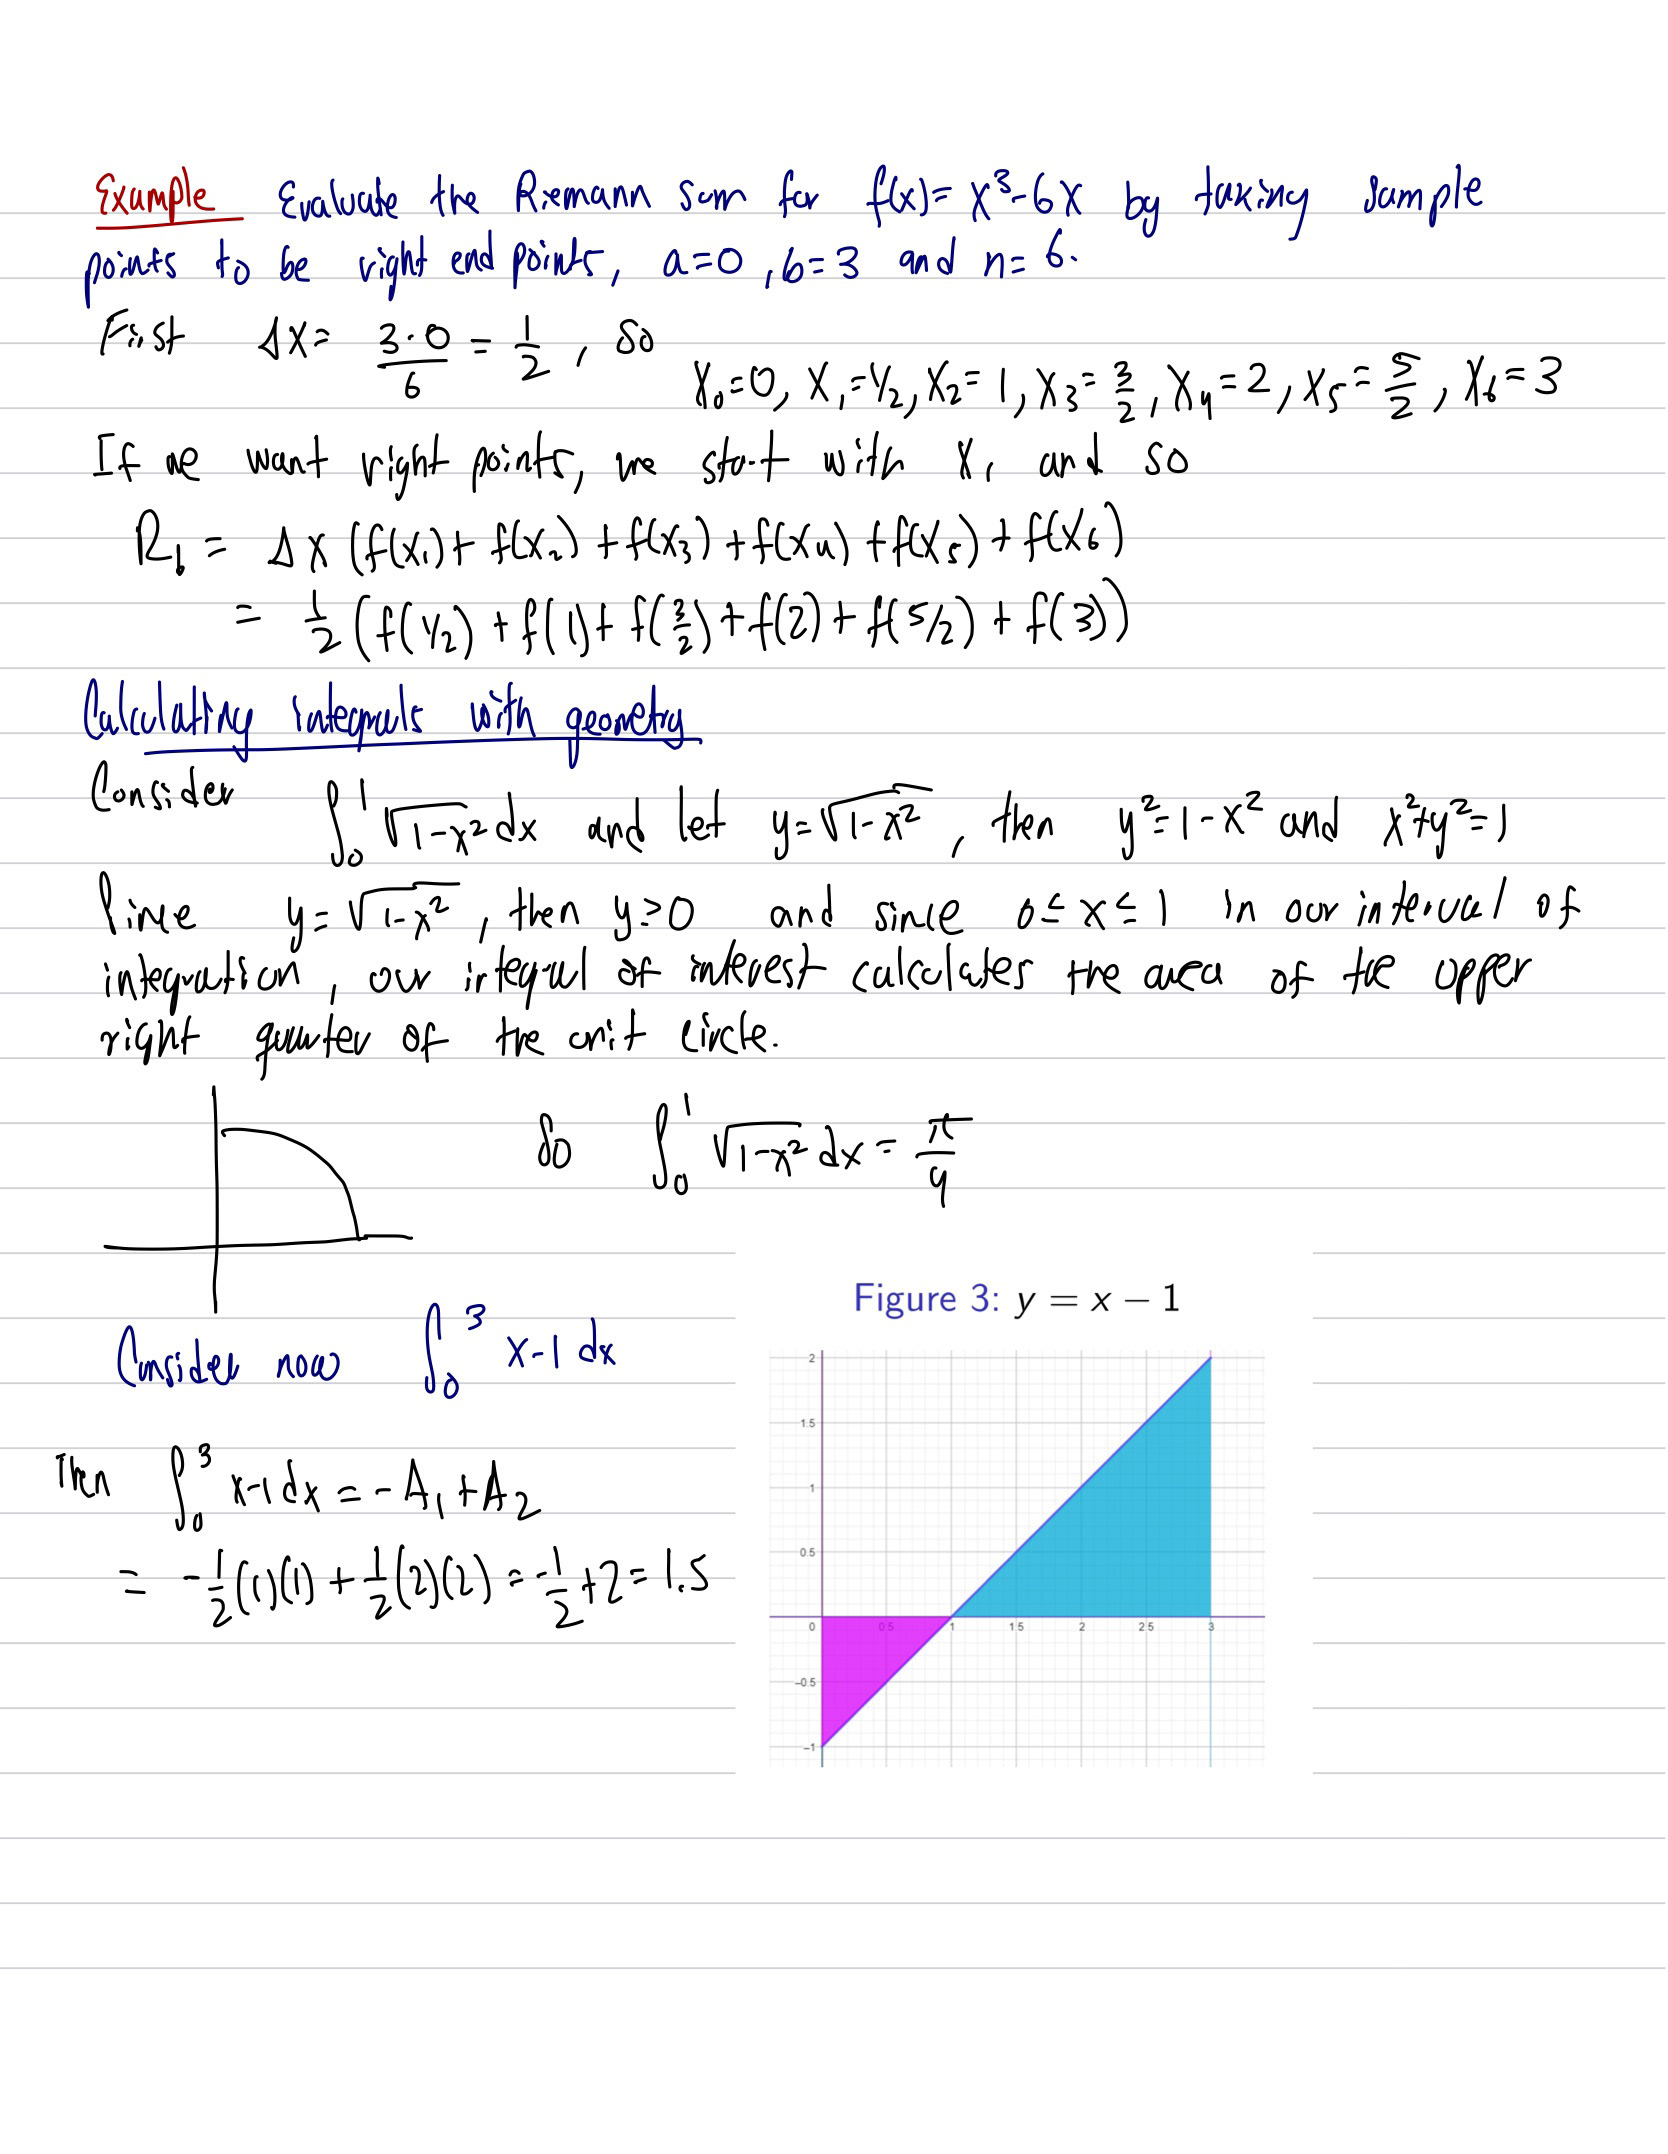 Example Evaluate the Riemann sum for f(x)= x³-6x by taking sample
points to be right end points, a=0, b=3 and n=6.
First Δx= (3-0)/6 = 1/2, so
x₀=0, x₁=1/2, x₂=1, x₃=3/2, x₄=2, x₅=5/2, x₆=3
If we want right points, we start with x₁ and so
R₆ = Δx (f(x₁)+ f(x₂) + f(x₃) + f(x₄) + f(x₅) + f(x₆)
= 1/2 (f(1/2) + f(1)+ f(3/2) + f(2) + f(5/2) + f(3))
Calculating integrals with geometry
Consider ∫₀¹ √(1-x²) dx and let y=√(1-x²), then y²=1-x² and x²+y²=1
Since y=√(1-x²), then y≥0 and since 0≤x≤1 in our interval of
integration, our integral of interest calculates the area of the upper
right quarter of the unit circle.
So ∫₀¹ √(1-x²) dx = π/4
Figure 3: y = x − 1
Consider now ∫₀³ x-1 dx
Then ∫₀³ x-1 dx = -A₁ + A₂
= -1/2(1)(1) + 1/2(2)(2) = -1/2+2 = 1.5
2
1.5
1
0.5
0 0.5 1 1.5 2 2.5 3
−0.5
−1